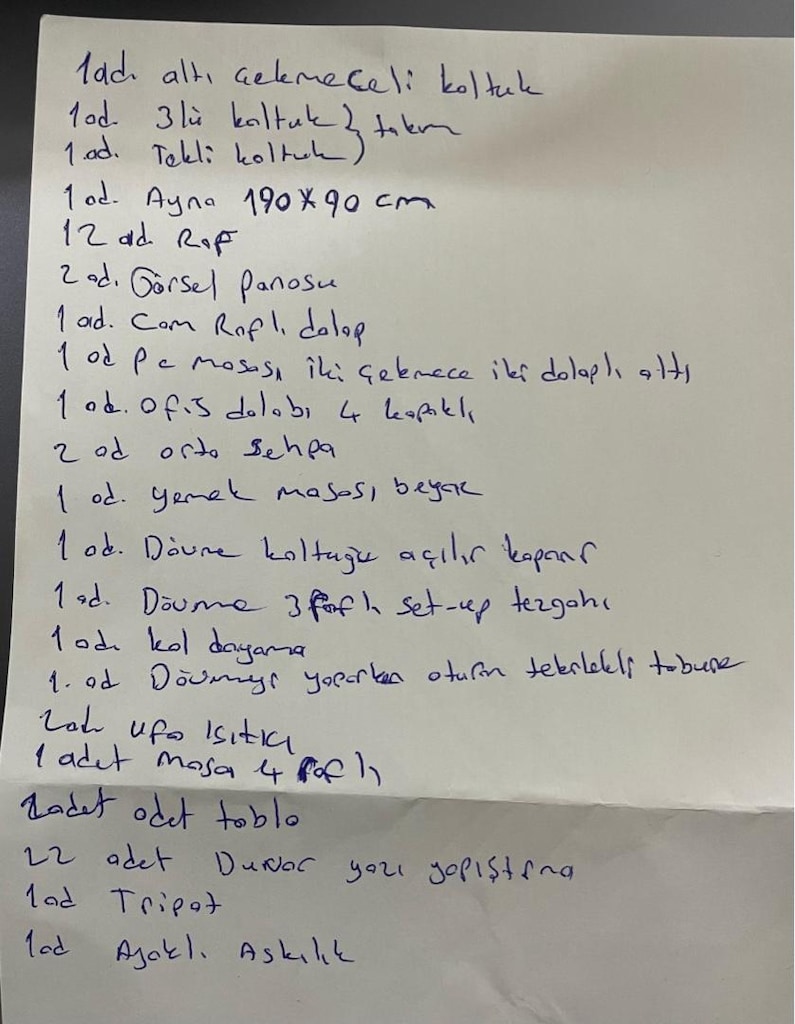 1ad. altı çekmeceli koltuk
1ad. 3lü koltuk } takım
1.ad. Tekli koltuk )
1ad. Ayna 190x90 cm
12 ad Raf
2 ad. Görsel Panosu
1 ad. Cam Raflı dolap
1 ad Pc masası iki çekmece iki dolaplı altı
1 ad. Ofis dolabı 4 kapaklı
2 ad orta Sehpa
1 ad. yemek masası beyaz
1 ad. Dövme koltuğu açılır kapanır
1 ad. Dövme 3 raflı set-up tezgahı
1 ad. kol dayama
1. ad Dövmeyi yaparken oturan tekerlekli tabure
2ad. ufo ısıtıcı
1 adet Masa 4 raflı
adet adet tablo
22 adet Duvar yazı yapıştırma
1ad Tripot
1ad Ayaklı Askılık